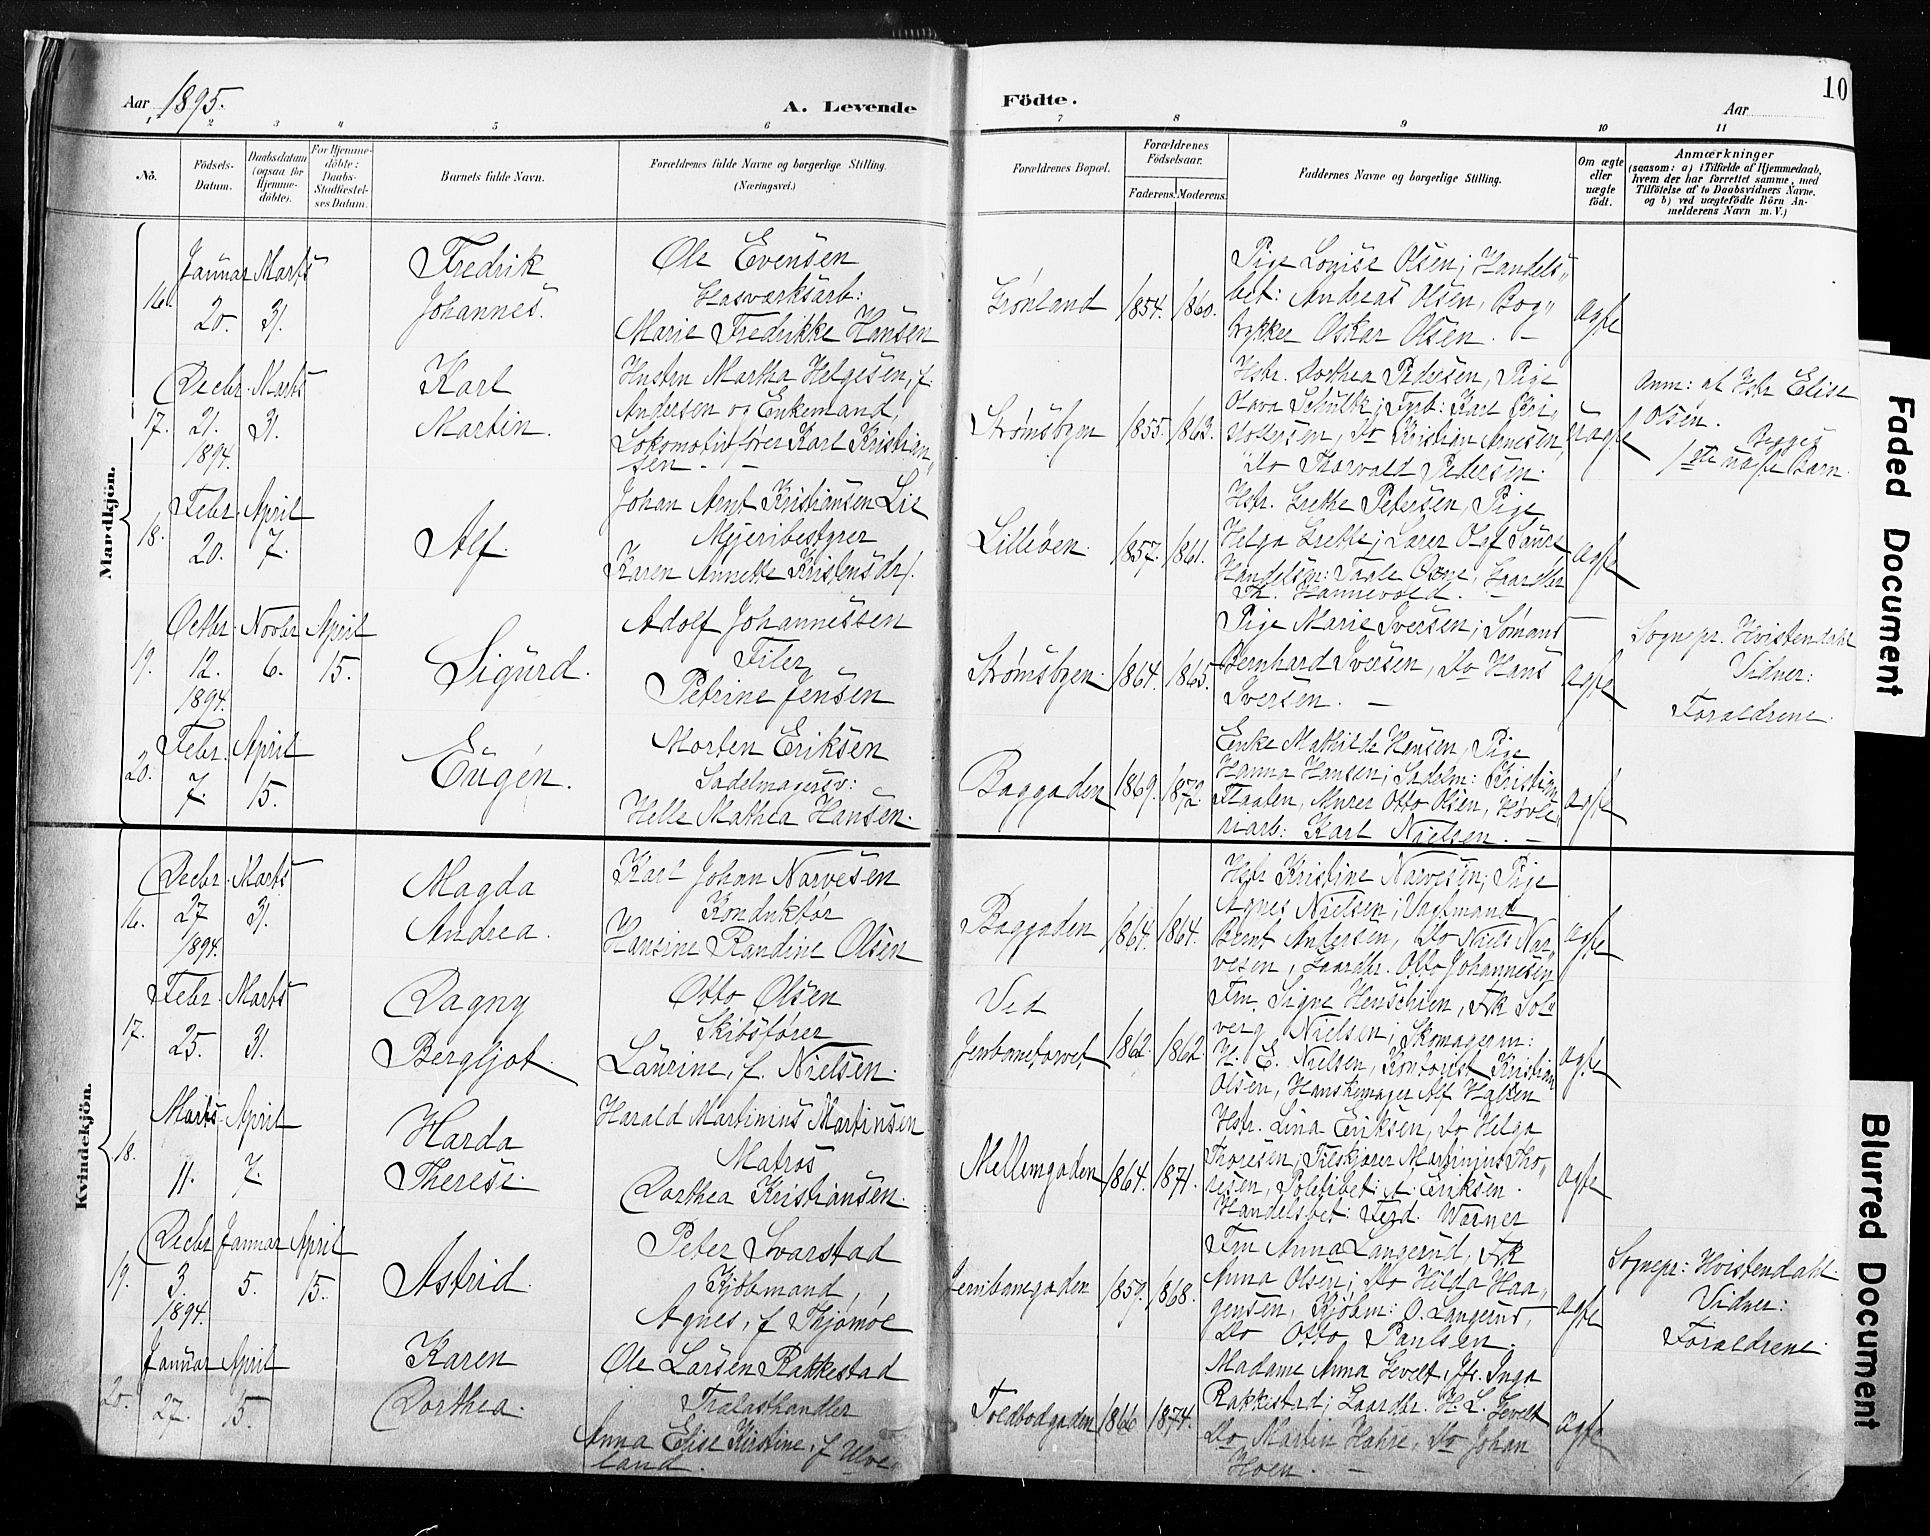 Aar 1895.
A. Levende
Födte.
Aar
10
1 2 3 4 5 6 7 8 9 10 11
No.
Födsels-
Datum.
Daabsdatum
(ogsaa for
Hjemme-
döbte).
For Hjemme-
döbte:
Daabs-
Stadfæstel-
ses Datum.
Barnets fulde Navn.
Forældrenes fulde Navne og borgerlige Stilling.
(Næringsvei.)
Forældrenes Bopæl.
Forældrenes
Födselsaar.
Faderens. Moderens.
Faddernes Navne og borgerlige Stilling.
Om ægte
eller
uægte
født.
Anmærkninger
(saasom: a) i Tilfælde af Hjemmedaab,
hvem der har forrettet samme, med
Tilföielse af to Daabsvidners Navne.
og b) ved uægtefödte Börn An-
melderens Navn m. V.)
Mandkjön.
16.
Januar
20.
Marts
31.
Fredrik
Johannes.
Ole Evensen
Gasværksarb:
Marie Fredrikke Hansen
Grønland
1854. 1860.
Pige Louise Olsen; Handels„
bet: Andreas Olsen, Bog„
trykker Oskar Olsen. –
ægte
17.
Decbr.
21.
1894.
Marts
31.
Karl
Martin.
Hustru Martha Helgesen, f.
Andersen og Enkemand,
Lokomotivfører Karl Kristian„
sen. –
Strømsbyen
1855. 1863.
Hstr. Dorthea Pedersen, Pige
Olava Schultz; Fyrb: Karl Kri„
stoffersen, Do Kristian Arnesen,
Do Thorvald Pedersen.
uægte
Anm: af Hstr Elise
Olsen.
Begges
1ste uægte Barn.
18.
Febr.
20.
April
7.
Alf.
Johan Arnt Kristiansen Lie
Mejeribestyrer
Karen Annette Kristensdr.
Lilleöen.
1857. 1861.
Hstr. Grethe Petersen, Pige
Helga Grette; Lærer Olaf Saure,
Handelsm: Taale Oxne, Gaardbr
Th. Hannevold.
ægte
19.
Octbr.
12.
1894.
Novbr
6.
April
15.
Sigurd.
Adolf Johannessen
Filer
Petrine Jensen
Strømsbyen.
1864. 1865.
Pige Marie Iversen; Sømand
Bernhard Iversen, Do Hans
Iversen. –
ægte
Sognepr. Hvistendahl
Vidner:
Forældrene.
20.
Febr.
7.
April
15.
Eugén.
Morten Eriksen
Sadelmagersv:
Helle Mathea Hansen.
Baggaden
1869. 1872.
Enke Mathilde Hansen, Pige
Hanna Hansen; Sadelm: Kristian
Flaaten, Murer Otto Olsen, Høvle„
riarb: Karl Nielsen. –
ægte
Kvindekjön.
16.
Decbr.
27
1894.
Marts
31.
Magda
Andrea.
Karl Johan Narvesen
Konduktør
Hansine Randine Olsen
Baggaden
1864. 1864.
Hstr Kristine Narvesen; Pige
Agnes Nielsen; Vagtmand
Bernt Andersen, Do Niels Nar„
vesen, Gaardbr. Otto Johannesen
ægte
17.
Febr.
25.
Marts
31.
Dagny
Bergljot.
Otto Olsen
Skibsfører
Laurine, f. Nielsen.
Ved
Jernbanetorvet
1862. 1862.
Fru Signe Henschien, Frk Sol„
verg Nielsen; Skomagerm:
H. E. Nielsen, Kontorist Kristian
Olsen, Hanskemager Alf Halsen
ægte
18.
Marts
11.
April
7.
Harda
Therese.
Harald Martinius Martinsen
Matros
Dorthea Kristiansen.
Mellemgaden
1864. 1871.
Hstr. Lina Eriksen, Do Helga
Thoresen; Tilskjærer Martinius Tho„
resen, Politibet: A. Eriksen.
Handelsbet: Ferd. Warner
ægte
19.
Decbr
3.
1894.
Januar
5.
April
15.
Astrid.
Peter Svarstad
Kjöbmand,
Agnes, f Thjømøe
Jernbanegaden
1859. 1868.
Fru Anna Langerud, Frk
Anna Olsen; Do Hilda Haa„
gensen, Kjöbm: O. Langerud,
Do Otto Paulsen.
ægte
Sognepr: Hvistendahl.
Vidner:
Forældrene.
20.
Januar
27.
April
15.
Karen
Dorthea.
Ole Larsen Rakkestad
Trælasthandler
Anna Elise Kirstine, f Ulve„
land.
Toldbodgaden
1866 1874.
Madame Anna Gevelt, Jfr. Inga
Rakkestad; Gaardbr. H. L. Gevelt
Do Martin Hahre, Do Johan
Hoen. –
ægte
Faded Document
Blurred Document